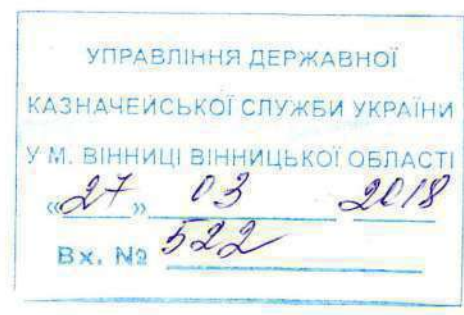 УПРАВЛІННЯ ДЕРЖАВНОЇ
КАЗНАЧЕЙСЬКОЇ СЛУЖБИ УКРАЇНИ
У М. ВІННИЦІ ВІННИЦЬКОЇ ОБЛАСТІ
«27» 03 2018
Вх. № 522